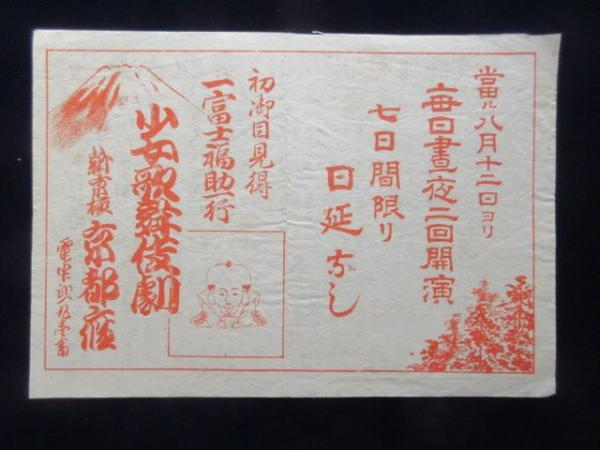 当ル八月十二日ヨリ
毎日昼夜二回開演
七日間限り
日延なし
初御目見得
一富士福助一行
少女歌舞伎劇
新京極
京都座